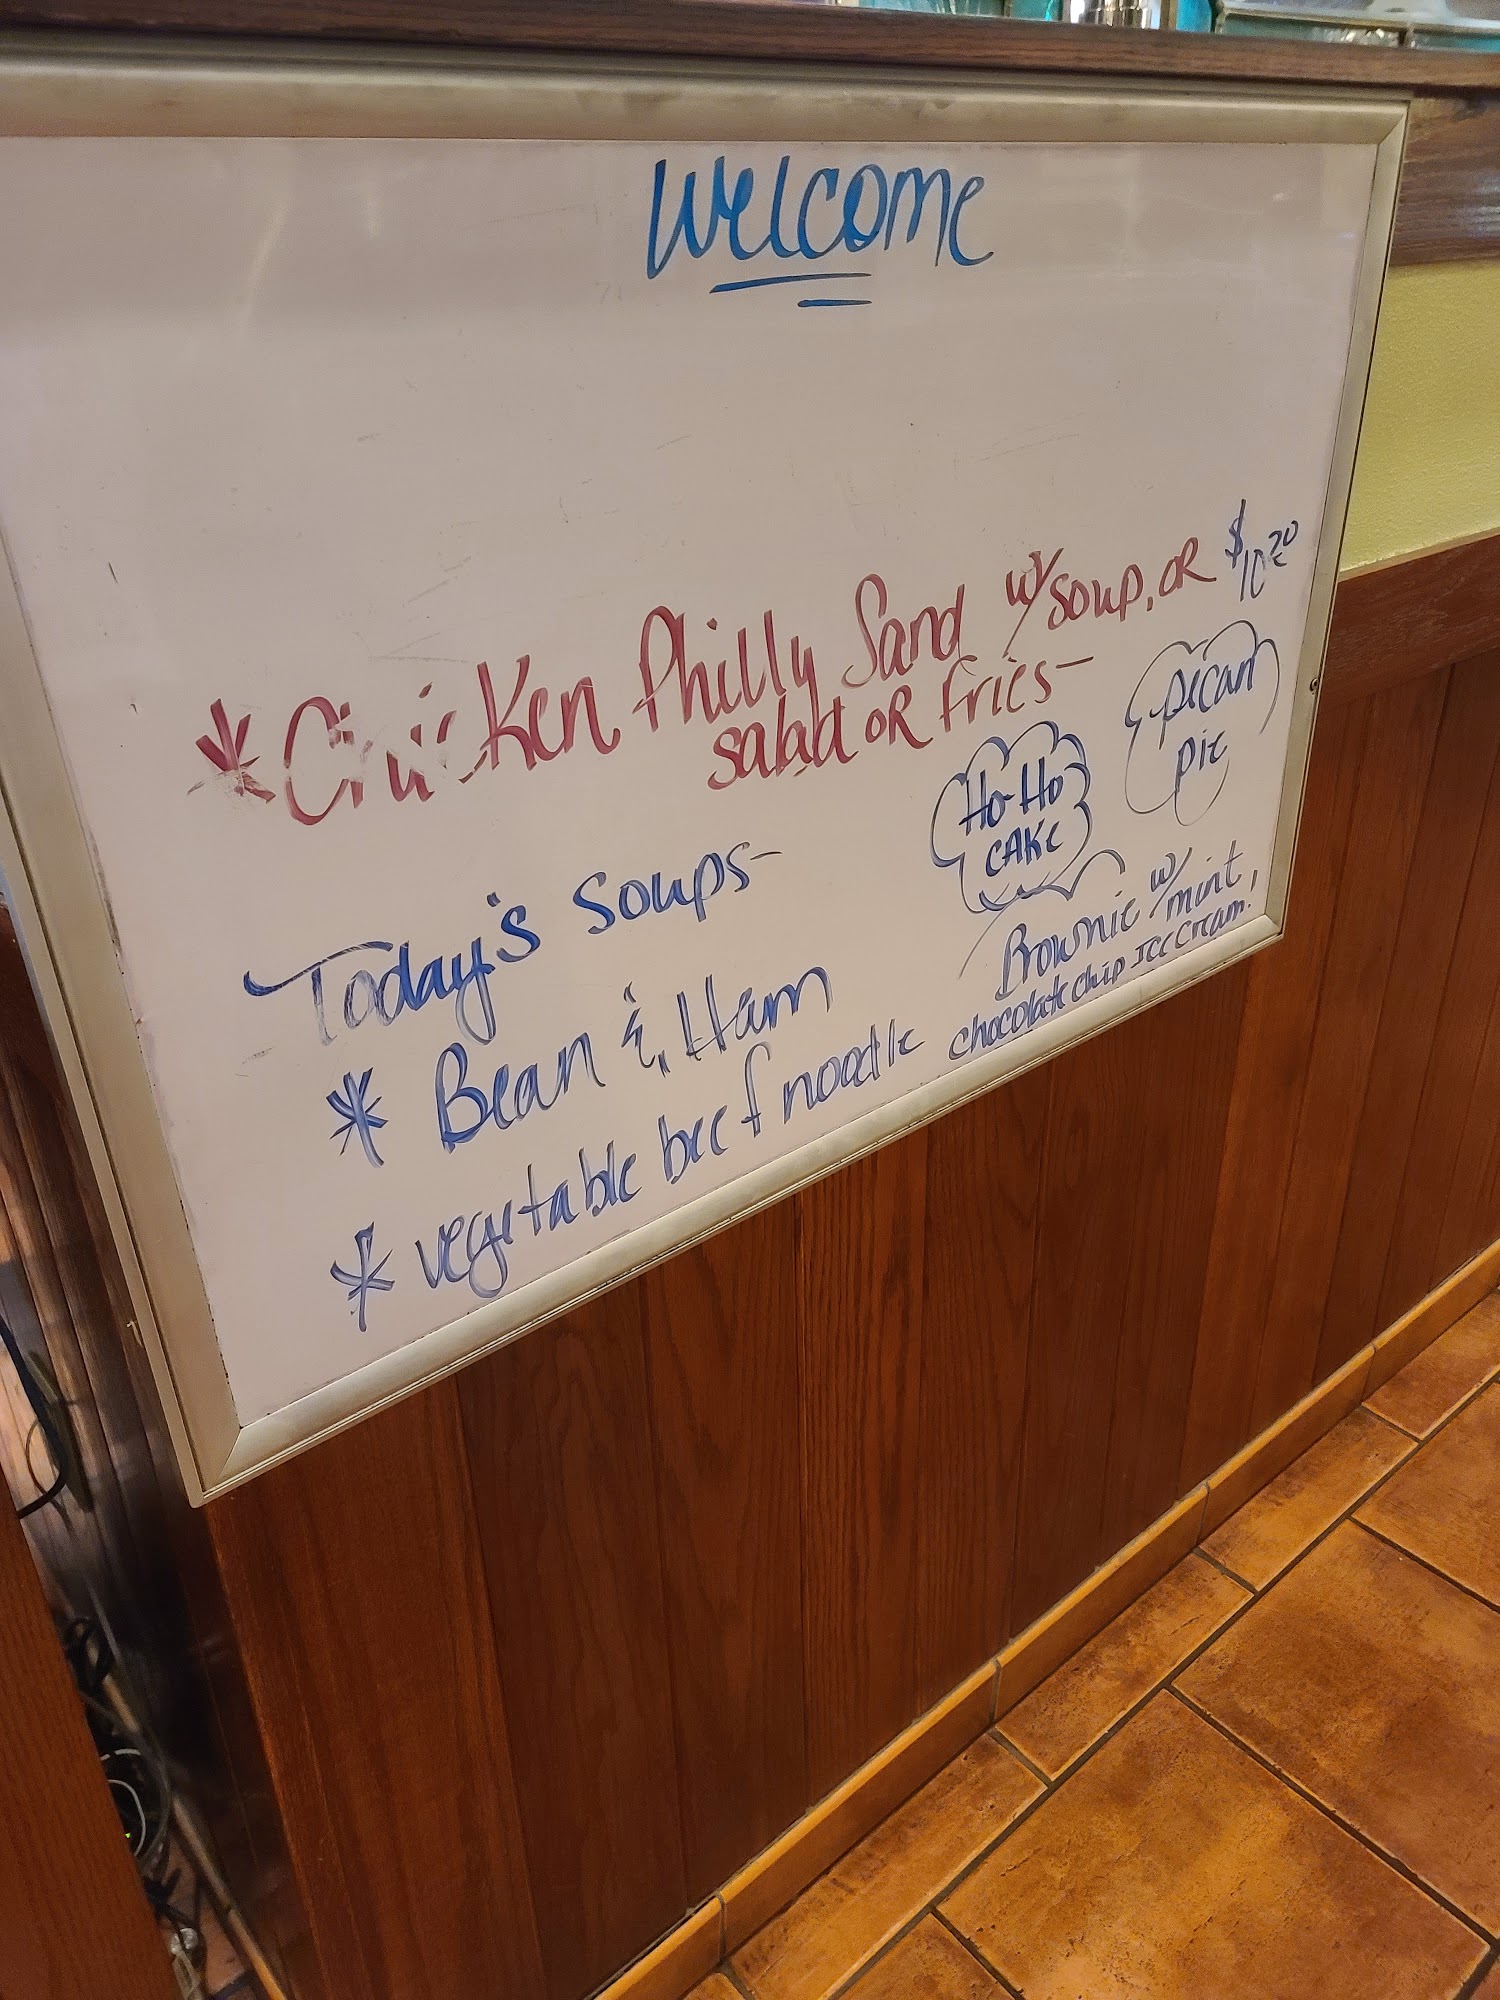 Welcome
*Chicken Philly Sand w/soup, OR $10.20
salad OR fries-
Ho-Ho
CAKe
pecan
pie
Today's Soups-
* Bean & Ham
* vegetable beef noodle
Brownie w/mint,
chocolate chip Ice Cream.